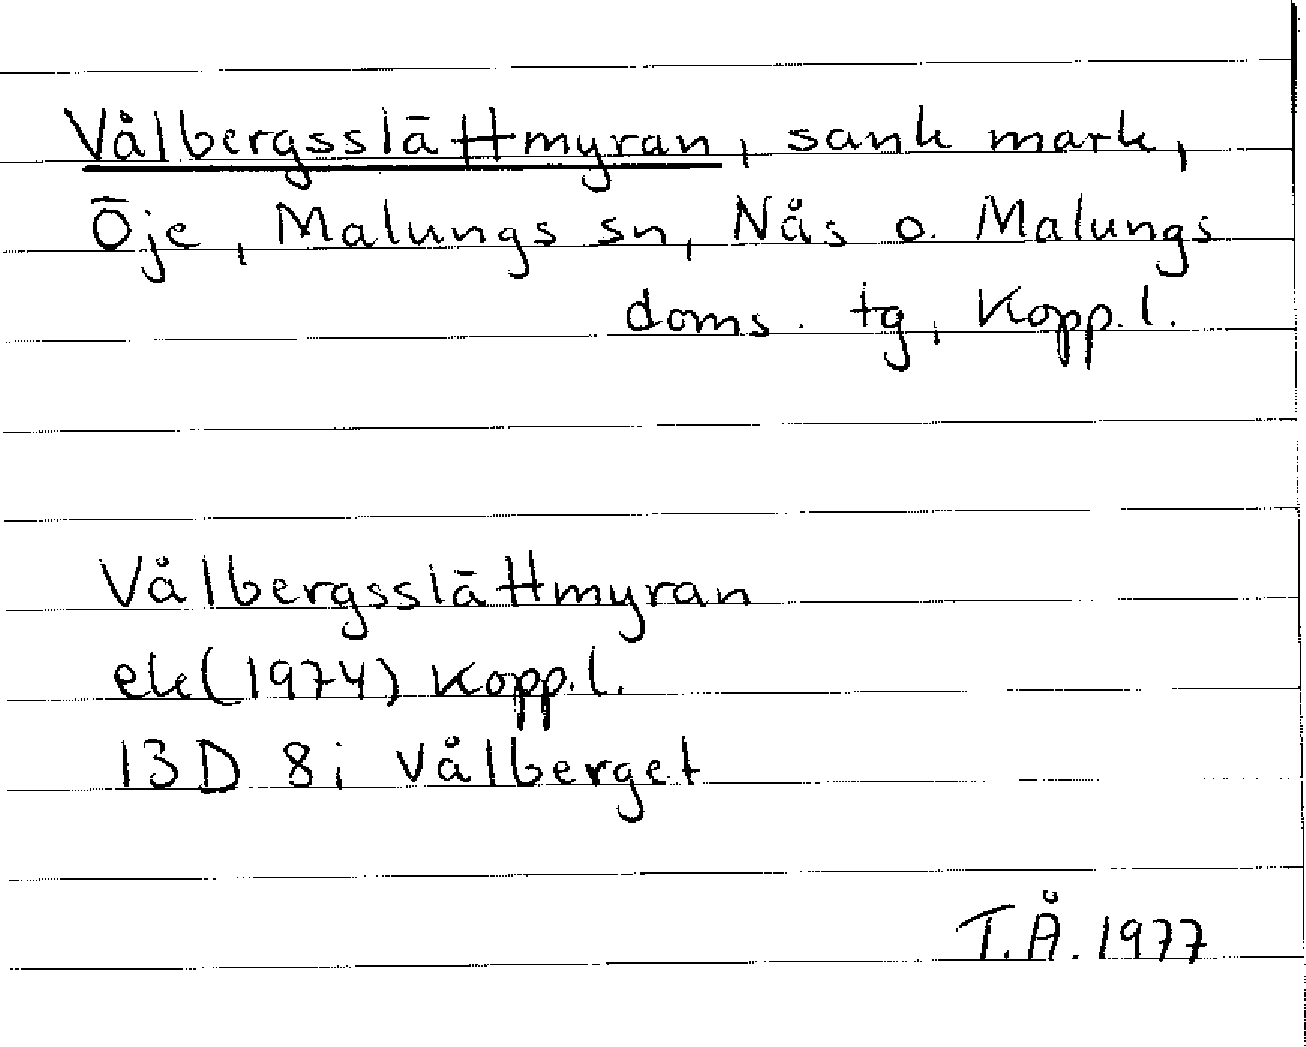 Vålbergsslättmyran, sank mark,
Öje, Malungs sn, Nås o. Malungs
doms. tg, Kopp. l.
Vålbergsslättmyran
ek (1974) Kopp. l.
13D 8i Vålberget
T.Å. 1977